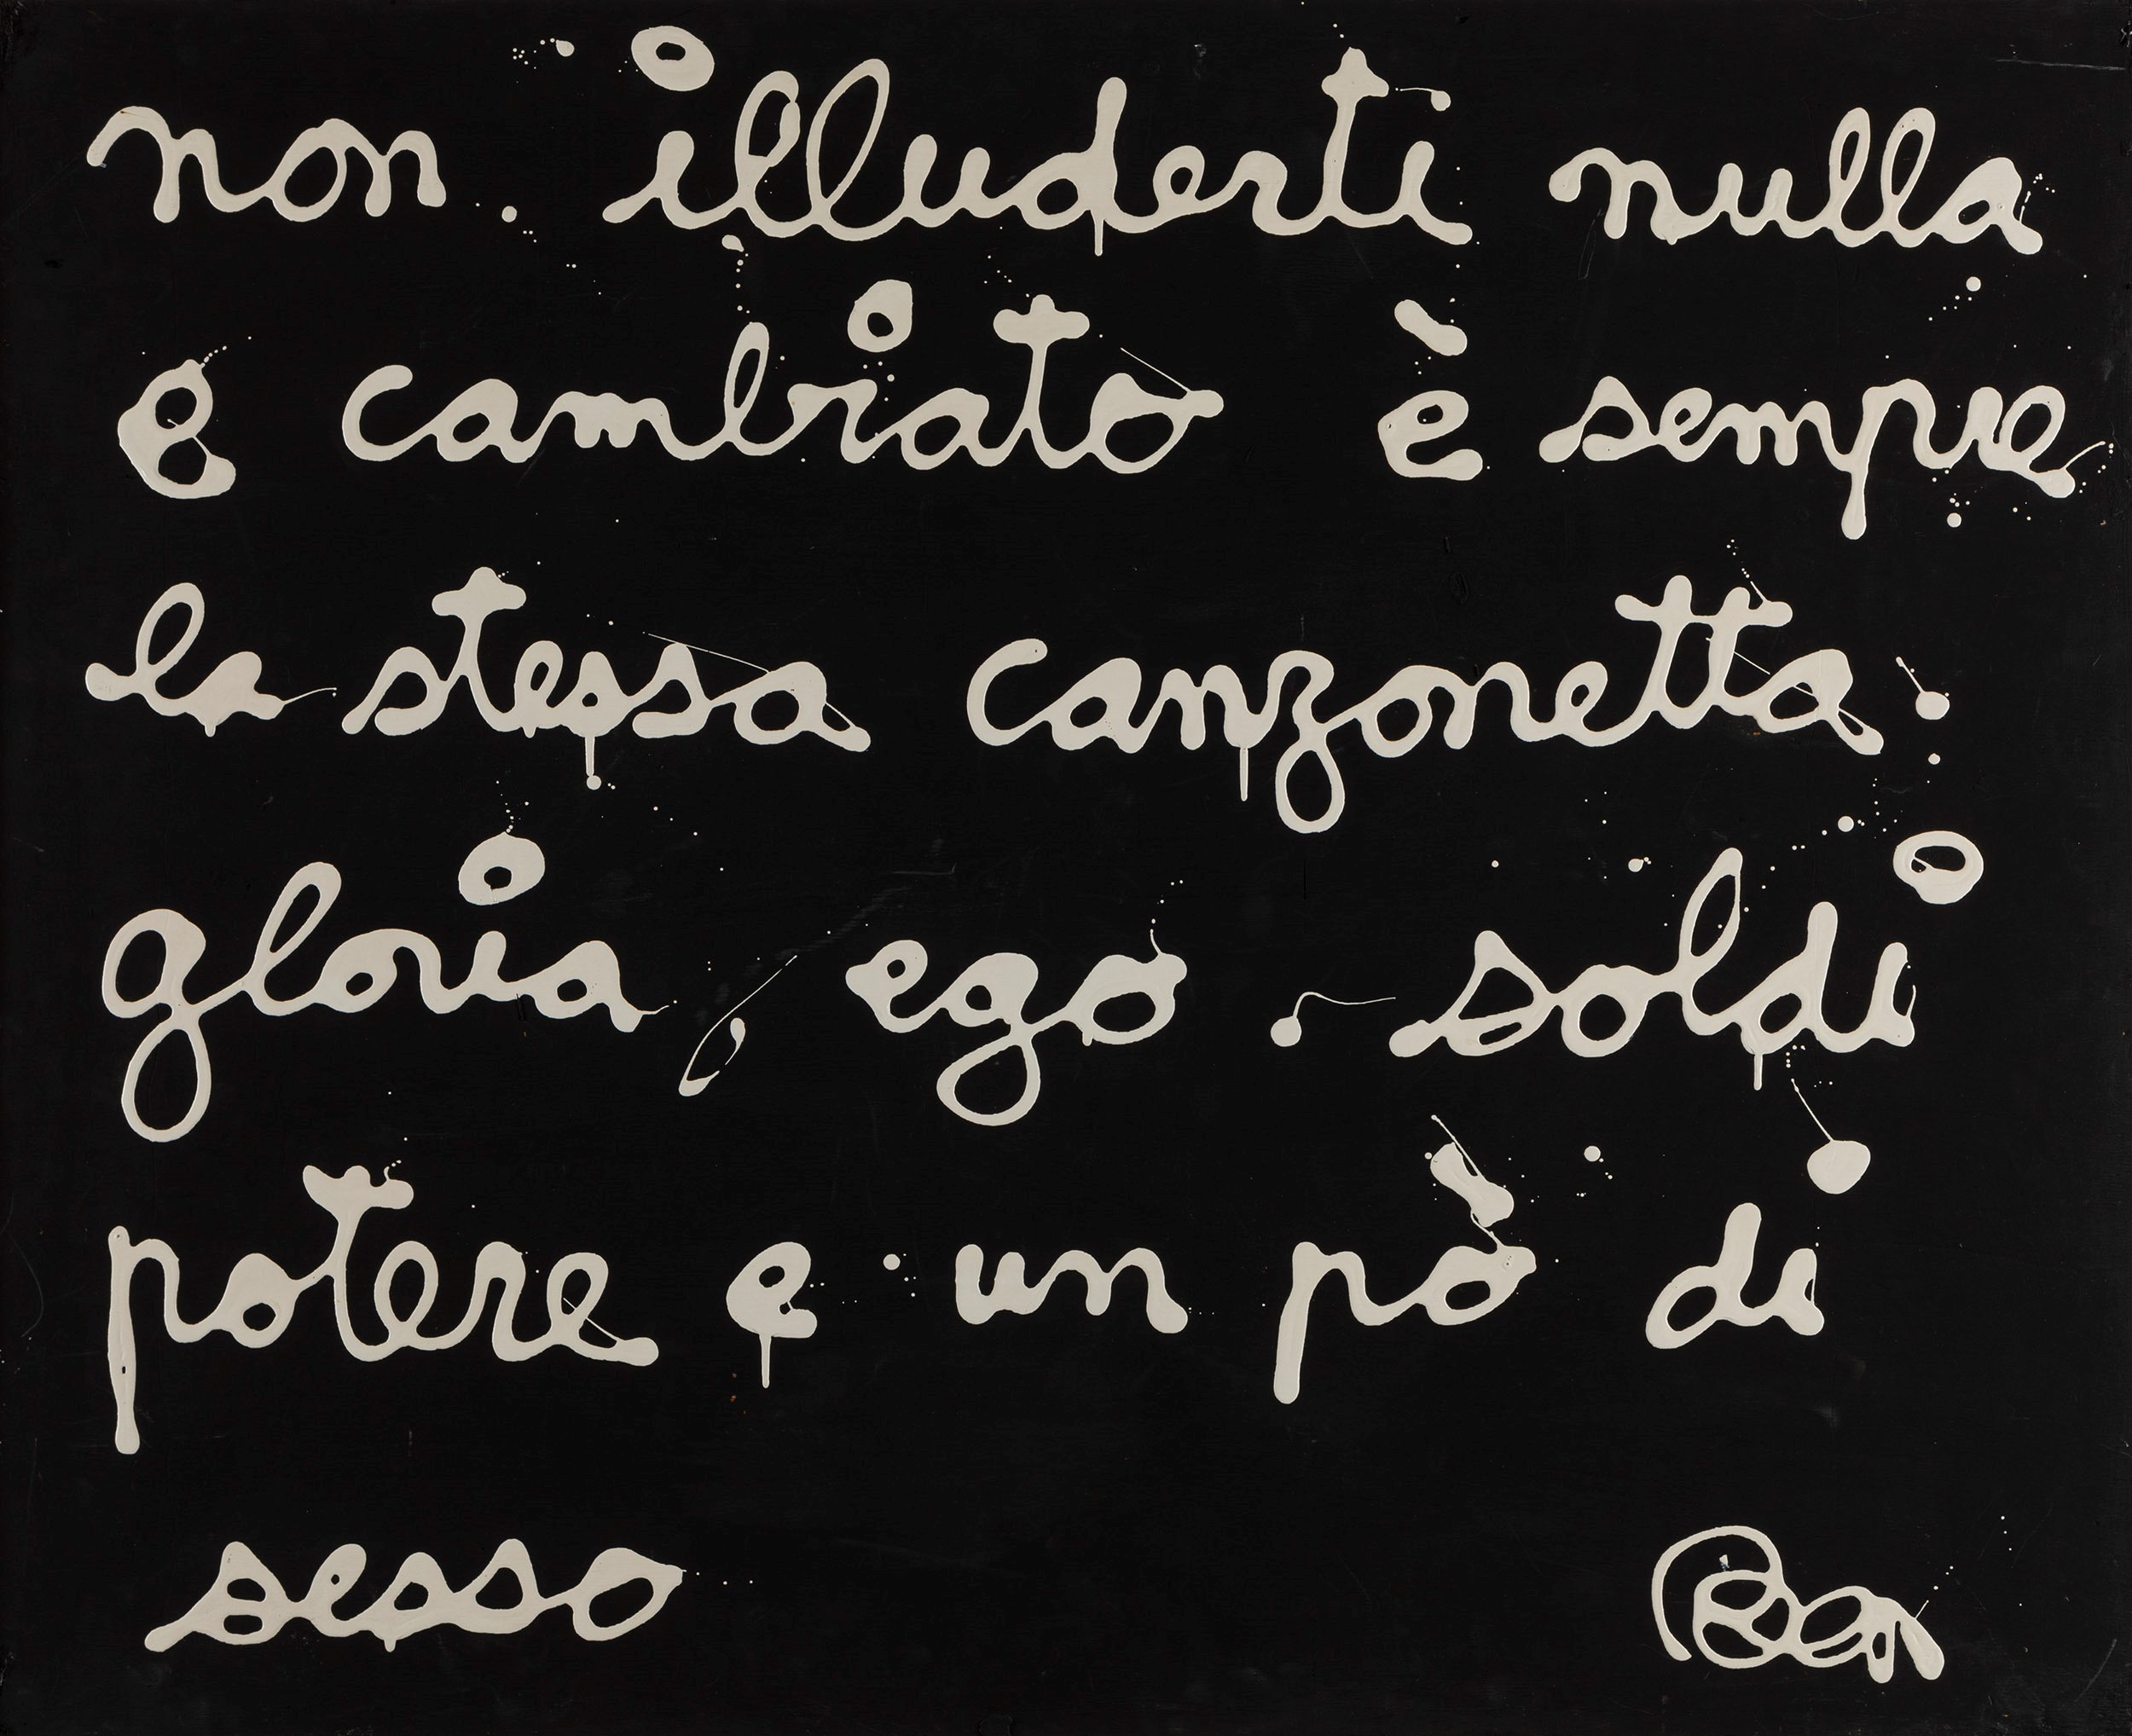 non illuderti nulla
e cambiato è sempre
la stessa canzonetta:
gloria, ego, soldi
potere e un pò di
sesso Ben